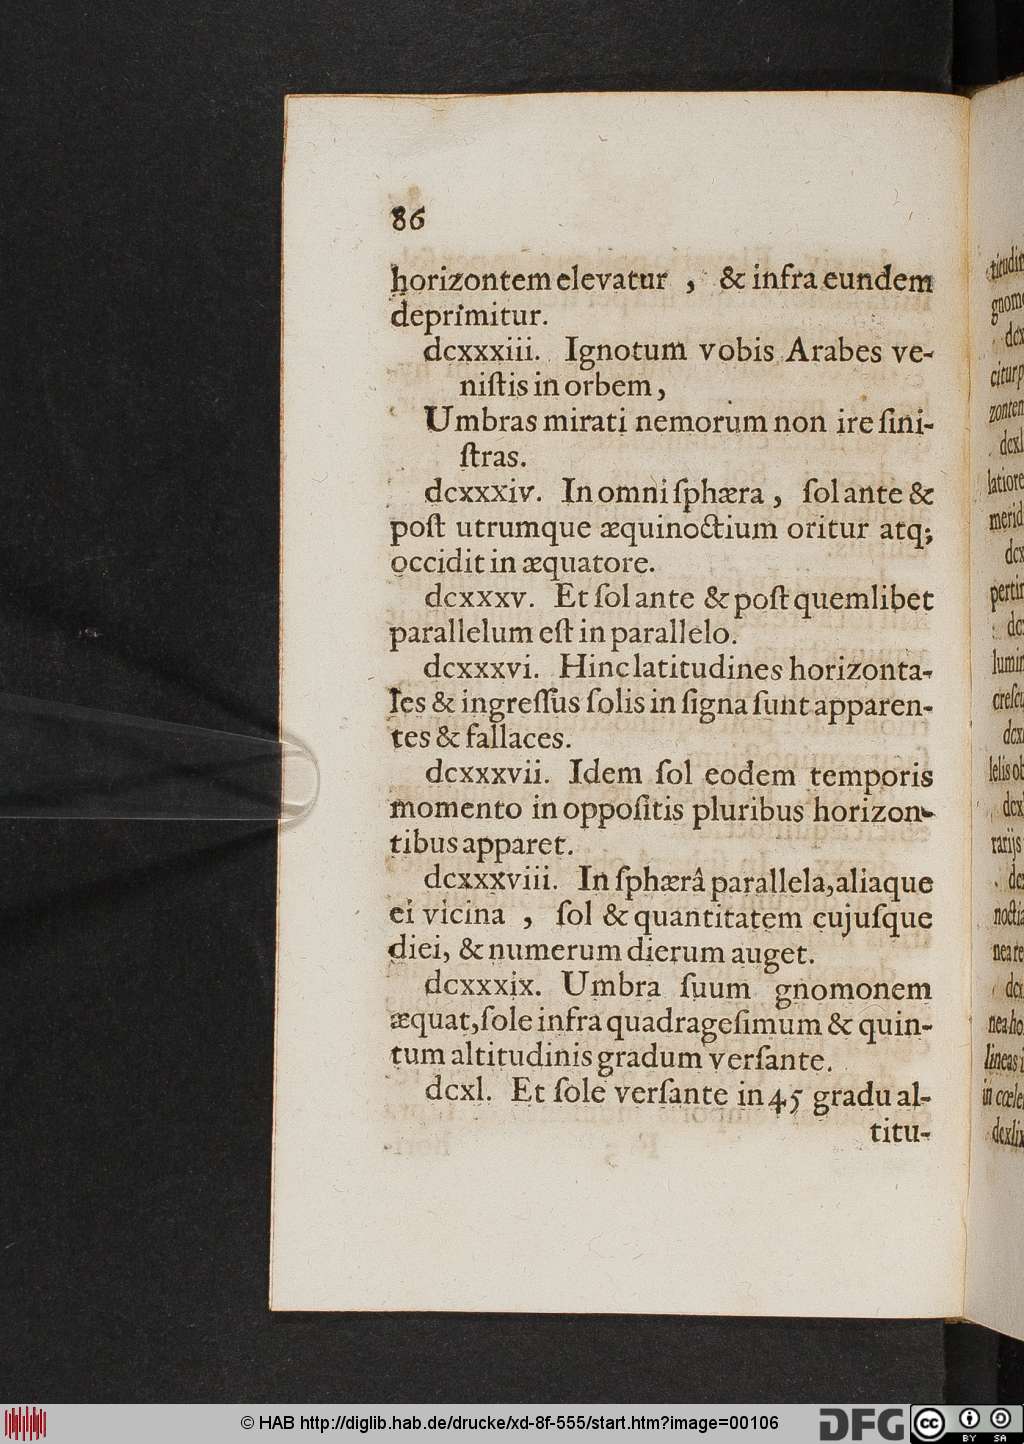 86
horizontem elevatur , & infra eundem
deprimitur.
dcxxxiii. Ignotum vobis Arabes ve-
niſtis in orbem,
Umbras mirati nemorum non ire ſini-
ſtras.
dcxxxiv. In omni ſphæra , ſol ante &
poſt utrumque æquinoctium oritur atq;
occidit in æquatore.
dcxxxv. Et ſol ante & poſt quemlibet
parallelum eſt in parallelo.
dcxxxvi. Hinc latitudines horizonta-
les & ingreſſus ſolis in ſigna ſunt apparen-
tes & fallaces.
dcxxxvii. Idem ſol eodem temporis
momento in oppoſitis pluribus horizon-
tibus apparet.
dcxxxviii. In ſphærâ parallela, aliaque
ei vicina , ſol & quantitatem cujuſque
diei, & numerum dierum auget.
dcxxxix. Umbra ſuum gnomonem
æquat, ſole infra quadrageſimum & quin-
tum altitudinis gradum verſante.
dcxl. Et ſole verſante in 45 gradu al-
titu-
© HAB http://diglib.hab.de/drucke/xd-8f-555/start.htm?image=00106
DFG
cc
BY SA